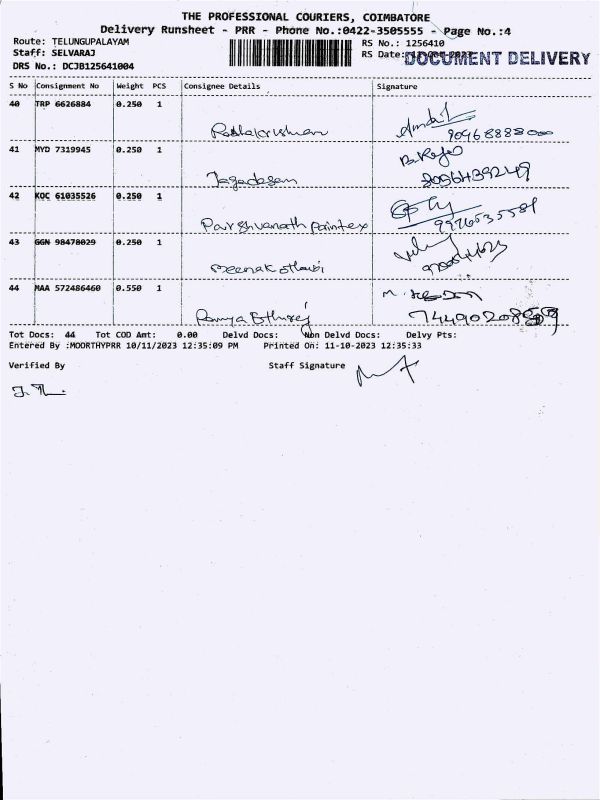 THE PROFESSIONAL COURIERS, COIMBATORE
Delivery Runsheet - PRR - Phone No.:0422-3505555 - Page No.:4
Route: TELUNGUPALAYAM
Staff: SELVARAJ
DRS No.: DCJB125641004
RS No.: 1256410
RS Date:
DOCUMENT DELIVERY
S No Consignment No Weight PCS Consignee Details Signature
40 TRP 6626884 0.250 1
Radhakrishnan
41 MYD 7319945 0.250 1
Jagadesan
42 KOC 61035526 0.250 1
Parshvanath Paintex
43 GGN 98478029 0.250 1
44 MAA 572486460 0.550 1
Ramya
Tot Docs: 44 Tot COD Amt: 0.00 Delvd Docs: Non Delvd Docs: Delvy Pts:
Entered By :MOORTHYPRR 10/11/2023 12:35:09 PM Printed On: 11-10-2023 12:35:33
Verified By Staff Signature